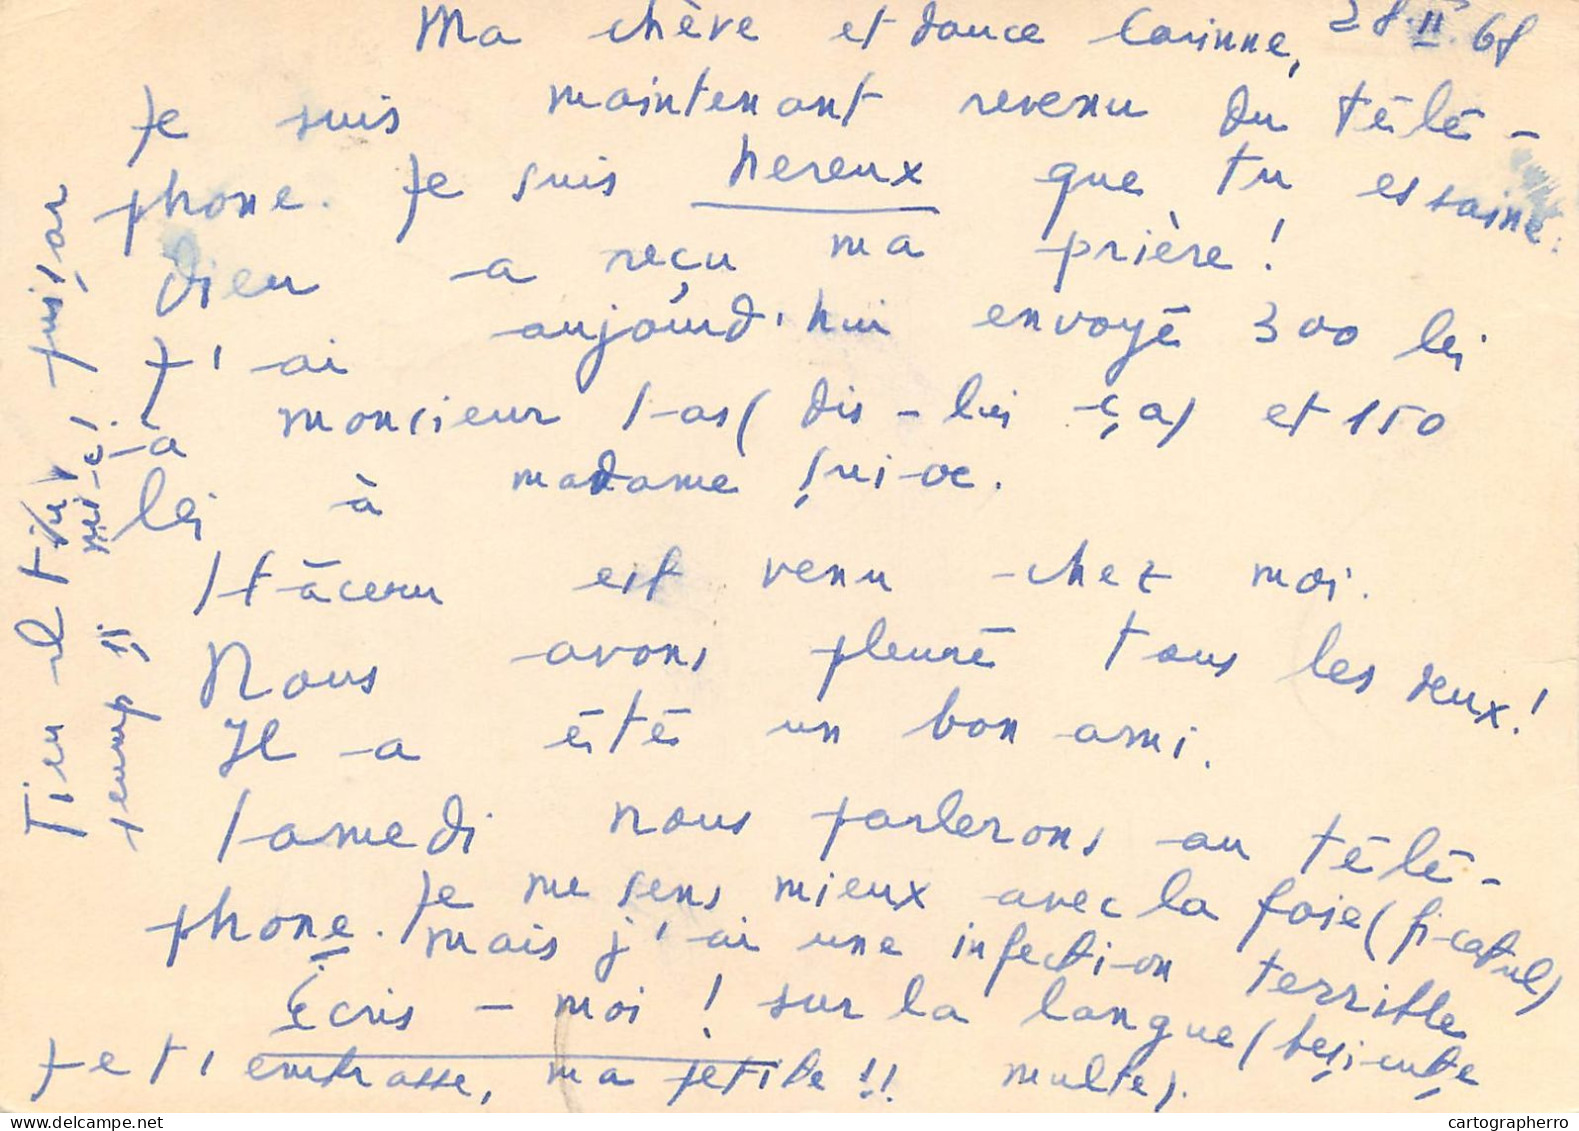 Ma chève et douce Corinne, 28 II 68
Je suis maintenant revenu du télé-
phone. Je suis hereux que tu es saine.
Dieu a reçu ma prière!
J'ai aujourd'hui envoyé 300 lei
à monsieur (dis-lui ça) et 150
lei à madame
Stăceru est venu chez moi.
Nous avons pleuré tous les deux!
Il a été un bon ami.
Samedi nous parlerons au télé-
phone. Je me sens mieux avec la foie (ficatul)
mais j'ai une infection terrible
Écris-moi! sur la langue (beșicuțe
Je t'embrasse, ma petite!! multe).
Tien el
temp și
cartographerro